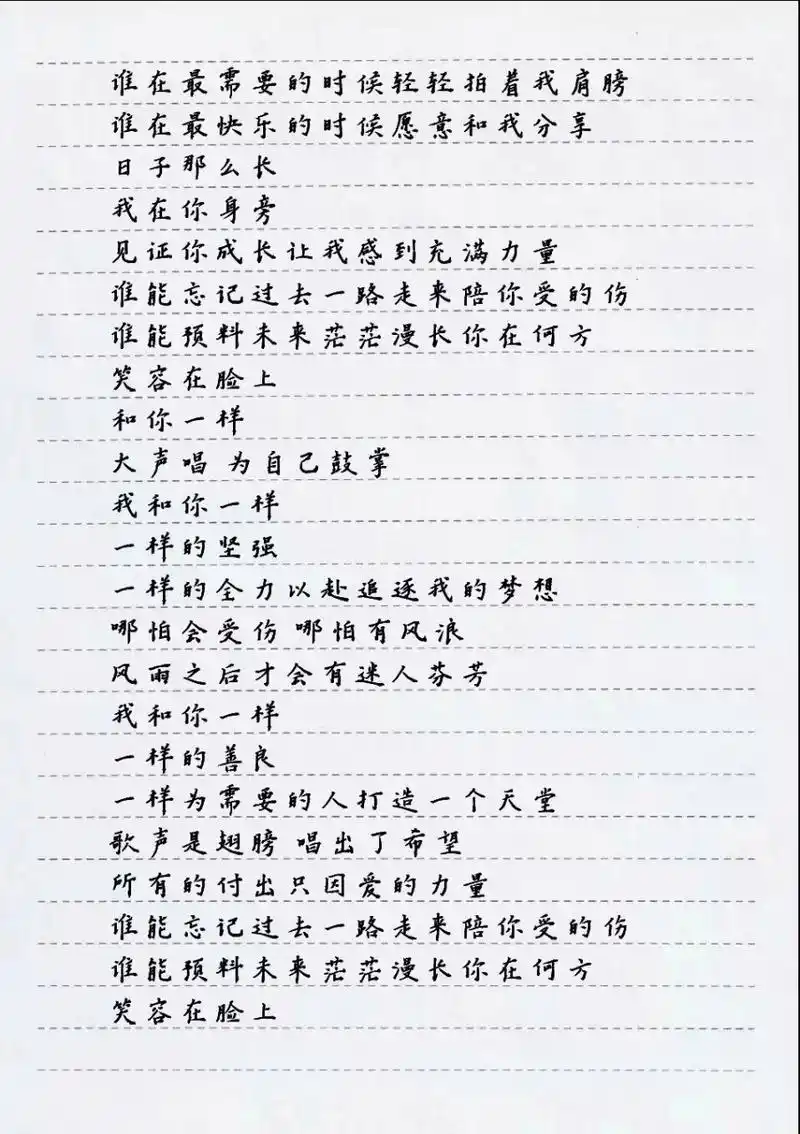 谁在最需要的时候轻轻拍着我肩膀
谁在最快乐的时候愿意和我分享
日子那么长
我在你身旁
见证你成长让我感到充满力量
谁能忘记过去一路走来陪你受的伤
谁能预料未来茫茫漫长你在何方
笑容在脸上
和你一样
大声唱 为自己鼓掌
我和你一样
一样的坚强
一样的全力以赴追逐我的梦想
哪怕会受伤 哪怕有风浪
风雨之后才会有迷人芬芳
我和你一样
一样的善良
一样为需要的人打造一个天堂
歌声是翅膀 唱出了希望
所有的付出只因爱的力量
谁能忘记过去一路走来陪你受的伤
谁能预料未来茫茫漫长你在何方
笑容在脸上